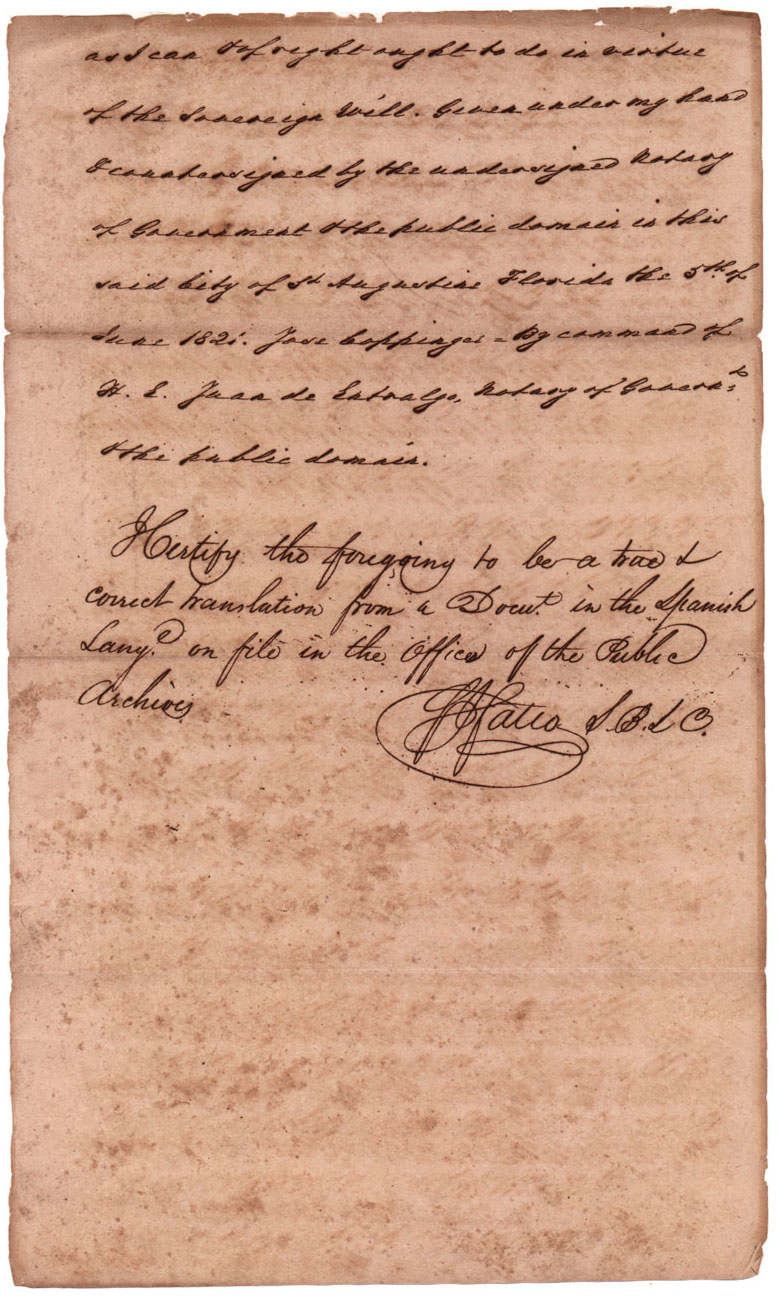 as I can & of right ought to do in virtue
of the Sovereign Will. Given under my hand
& countersigned by the undersigned Notary
of Government & the public domain in this
said City of St Augustine Florida the 5th of
June 1821. Jose Coppinger = By command of
H. E. Juan de Entralgo, Notary of Governt
& the public domain.
I Certify the foregoing to be a true &
correct translation from a Docut in the Spanish
Lange on file in the Office of the Public
Archives
S. B. L C.